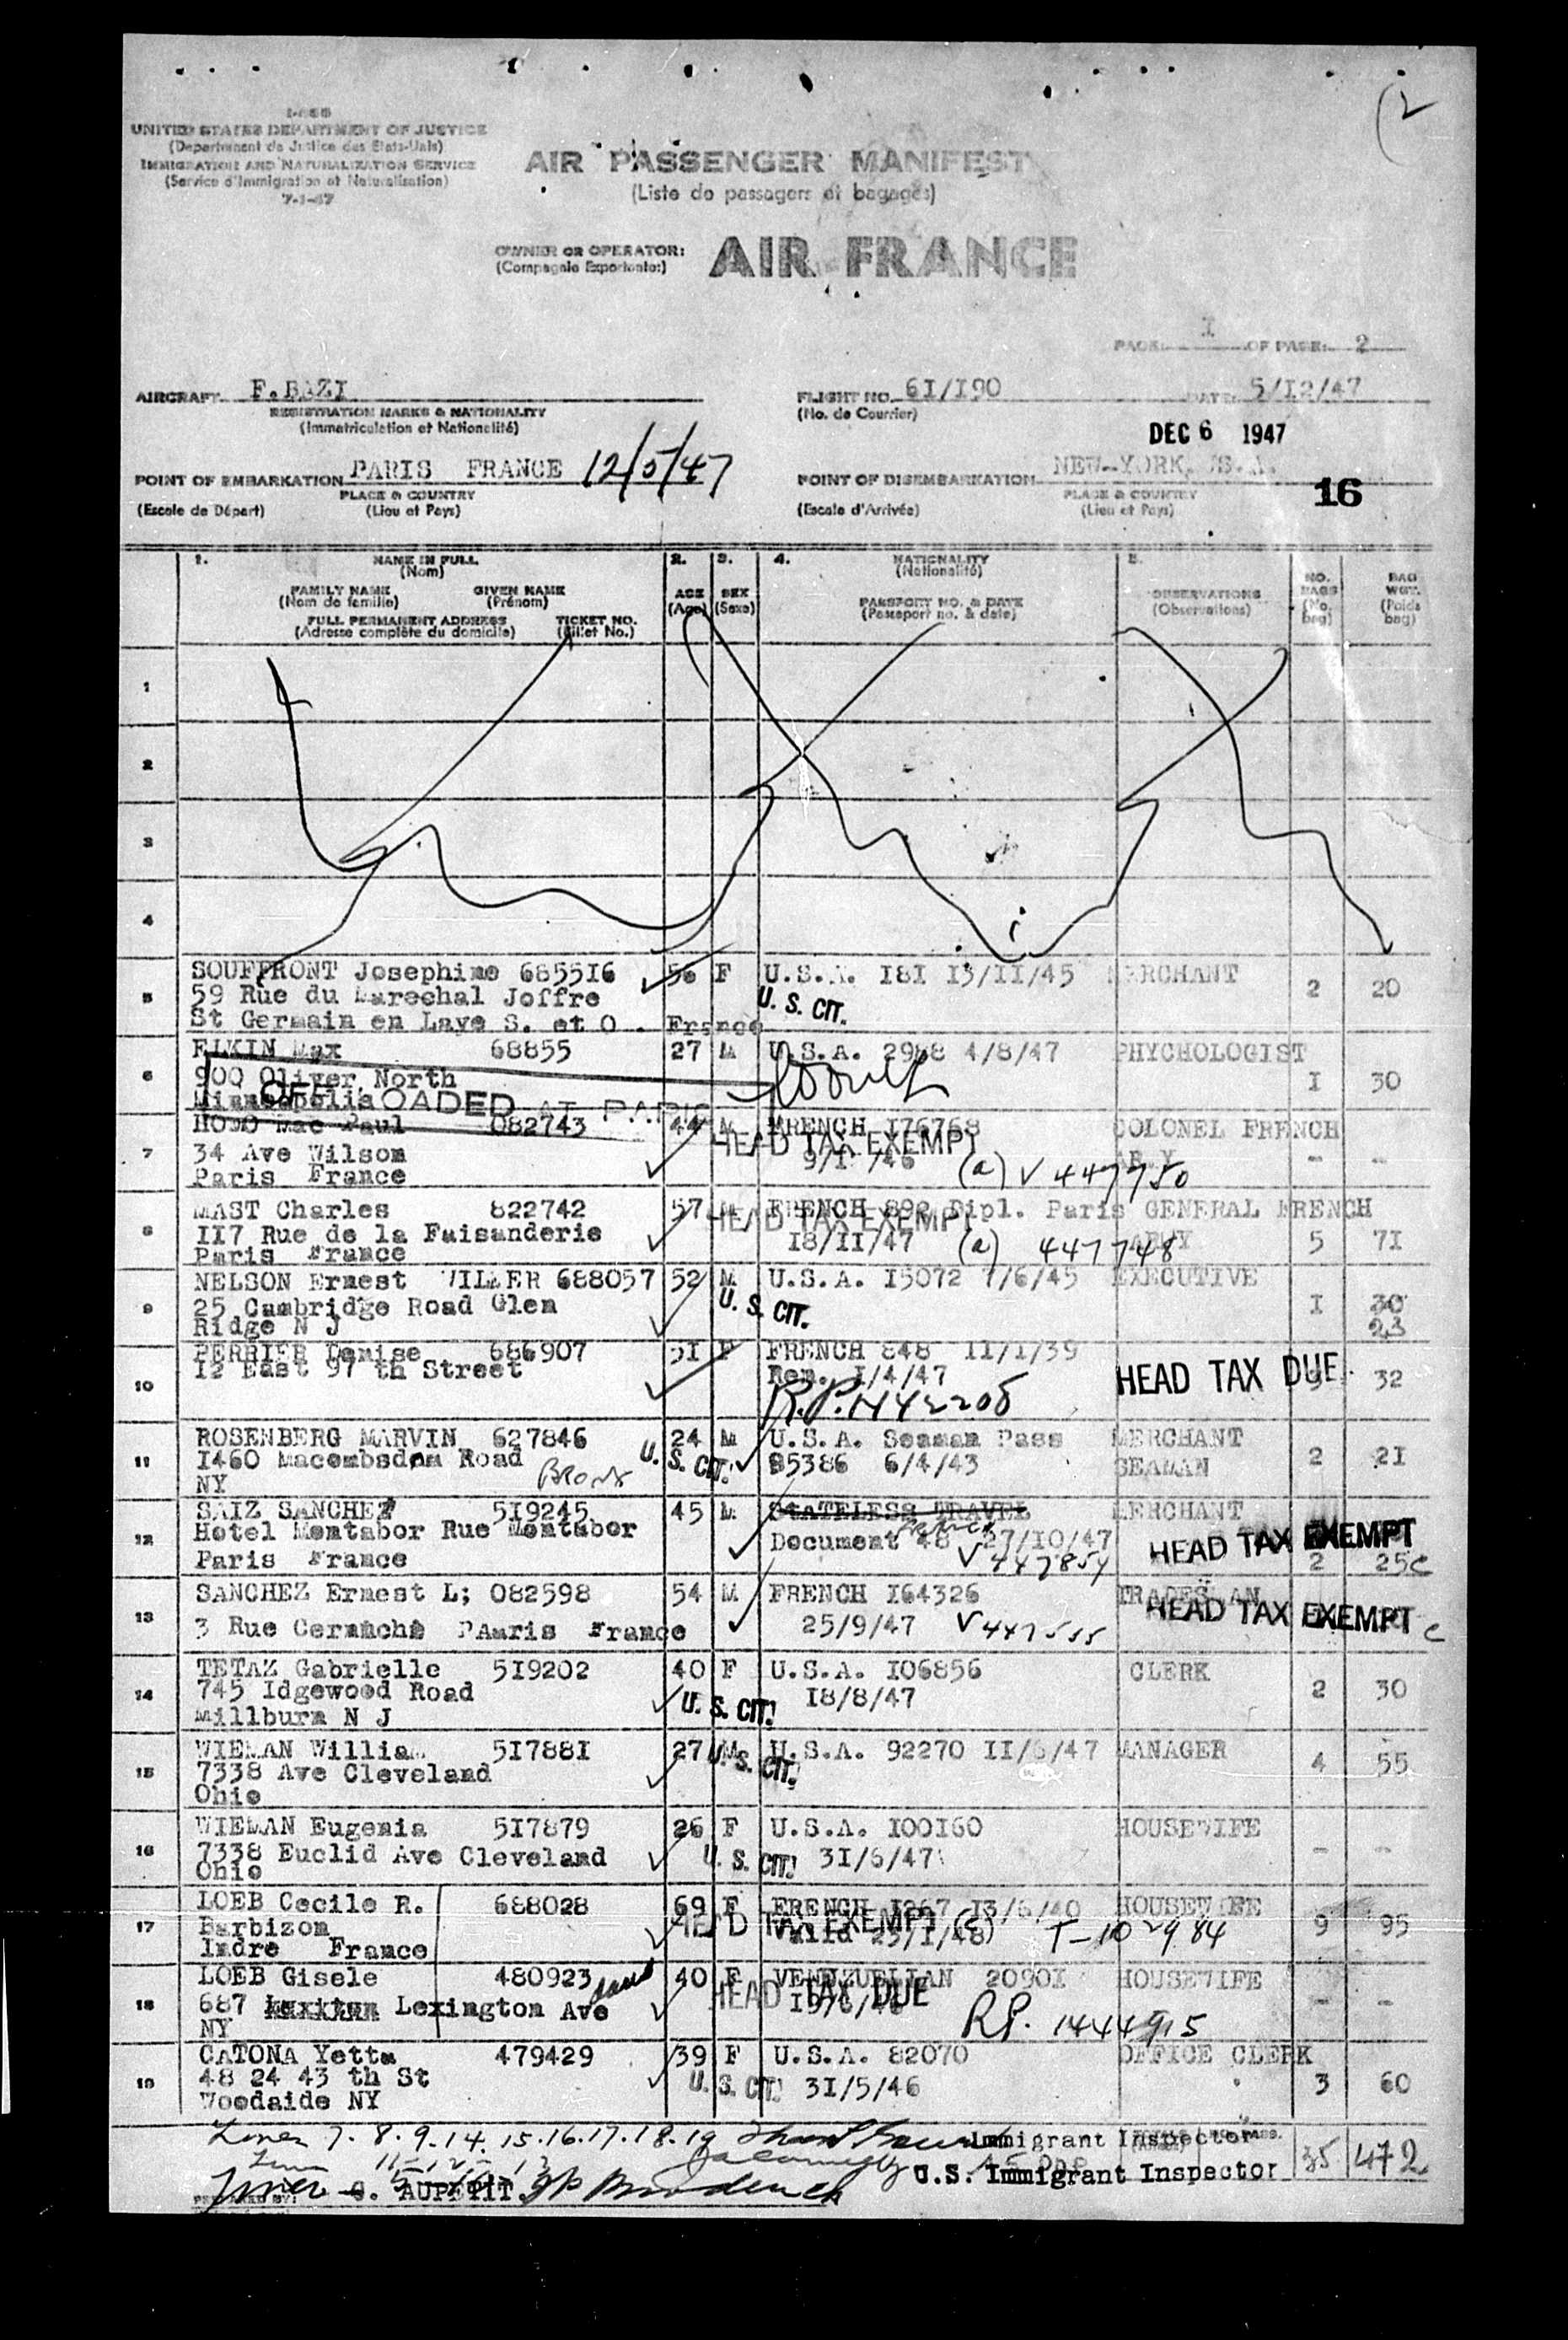 I-466
UNITED STATES DEPARTMENT OF JUSTICE
(Departement de Justice des Etats-Unis)
IMMIGRATION AND NATURALIZATION SERVICE
(Service d'Immigration et Naturalisation)
7-1-47
AIR PASSENGER MANIFEST
(Liste de passagers et bagages)
OWNER OR OPERATOR: AIR FRANCE
(Compagnie Exportante:)
PAGE: I OF PAGE: 2
AIRCRAFT F.BAZI
REGISTRATION MARKS & NATIONALITY
(Immatriculation et Nationalité)
FLIGHT NO. 6I/I90 DATE: 5/I2/47
(No. de Courrier)
DEC 6 1947
POINT OF EMBARKATION PARIS FRANCE 12/5/47
PLACE & COUNTRY
(Escale de Départ) (Lieu et Pays)
POINT OF DISEMBARKATION NEW-YORK, U.S.A.
PLACE & COUNTRY
(Escale d'Arrivée) (Lieu et Pays)
16
1. NAME IN FULL
(Nom)
FAMILY NAME GIVEN NAME
(Nom de famille) (Prénom)
FULL PERMANENT ADDRESS TICKET NO.
(Adresse complète du domicile) (Billet No.)
2. AGE
(Age)
3. SEX
(Sexe)
4. NATIONALITY
(Nationalité)
PASSPORT NO. & DATE
(Passeport no. & date)
5. OBSERVATIONS
(Observations)
NO. BAGS
(No. bag)
BAG WGT.
(Poids bag)
1
2
3
4
5 SOUFFRONT Josephine 6855I6 F U.S.A. I8I I3/II/45 MERCHANT 2 20
59 Rue du Marechal Joffre U. S. CIT.
St Germain en Laye S. et O . France
6 ELKIN Max 68855 27 M U.S.A. 4/8/47 PHYCHOLOGIST I 30
900 Oliver North
Minneapolis
OFF LOADED AT PARIS
7 Paul 082743 44 M FRENCH I76768 COLONEL FRENCH
34 Ave Wilson HEAD TAX EXEMPT ARMY - -
Paris France (a) 447750
8 MAST Charles 822742 57 M FRENCH 892 Dipl. Paris GENERAL FRENCH
II7 Rue de la Faisanderie HEAD TAX EXEMPT I8/II/47 ARMY 5 7I
Paris France (a) 447748
9 NELSON Ernest WILLER 688057 52 M U.S.A. I5072 7/6/45 EXECUTIVE
25 Cambridge Road Glen U. S. CIT. I 30
Ridge N J 23
10 PERRIER Denise 686907 5I F FRENCH 848 11/1/39
I2 East 97 th Street Ren. I/4/47 HEAD TAX DUE 32
R.P.
11 ROSENBERG MARVIN 627846 24 M U.S.A. Seaman Pass MERCHANT
I460 Macombsdam Road U. S. CIT. 85386 6/4/43 SEAMAN 2 2I
NY Bronx
12 SAIZ SANCHEZ 5I9245 45 M StATELESS TRAVEL MERCHANT
Hotel Montabor Rue Montabor Document 48 27/I0/47 HEAD TAX EXEMPT
Paris France 447854 2 25c
13 SANCHEZ Ernest L; 082598 54 M FRENCH I64326 TRADESMAN
3 Rue Cernuchi PAaris France 25/9/47 HEAD TAX EXEMPT c
14 TETAZ Gabrielle 5I9202 40 F U.S.A. I06856 CLERK
745 Idgewood Road I8/8/47 2 30
Millburn N J U. S. CIT.
15 WIEMAN William 5I788I 27 M U.S.A. 92270 II/6/47 MANAGER 4 55
7338 Ave Cleveland U. S. CIT.
Ohio
16 WIEMAN Eugenia 5I7879 26 F U.S.A. I00I60 HOUSEWIFE
7338 Euclid Ave Cleveland U. S. CIT. 3I/6/47 - -
Ohio
17 LOEB Cecile R. 688028 69 F FRENCH I267 I3/6/40 HOUSEWIFE
Barbizon HEAD TAX EXEMPT (c) Valid 23/I/48) 9 95
Indre France T-102984
18 LOEB Gisele 480923 40 F VENEZUELIAN 2090I HOUSEWIFE
687 Lexington Ave HEAD TAX DUE - -
NY RP. 1444915
19 CATONA Yetta 479429 39 F U.S.A. 82070 OFFICE CLERK
48 24 43 th St U. S. CIT. 3I/5/46 3 60
Woodside NY
Lines 7.8.9.14.15.16.17.18.19 Immigrant Inspector 35 472
U.S. Immigrant Inspector
PREPARED BY: AUPETIT.